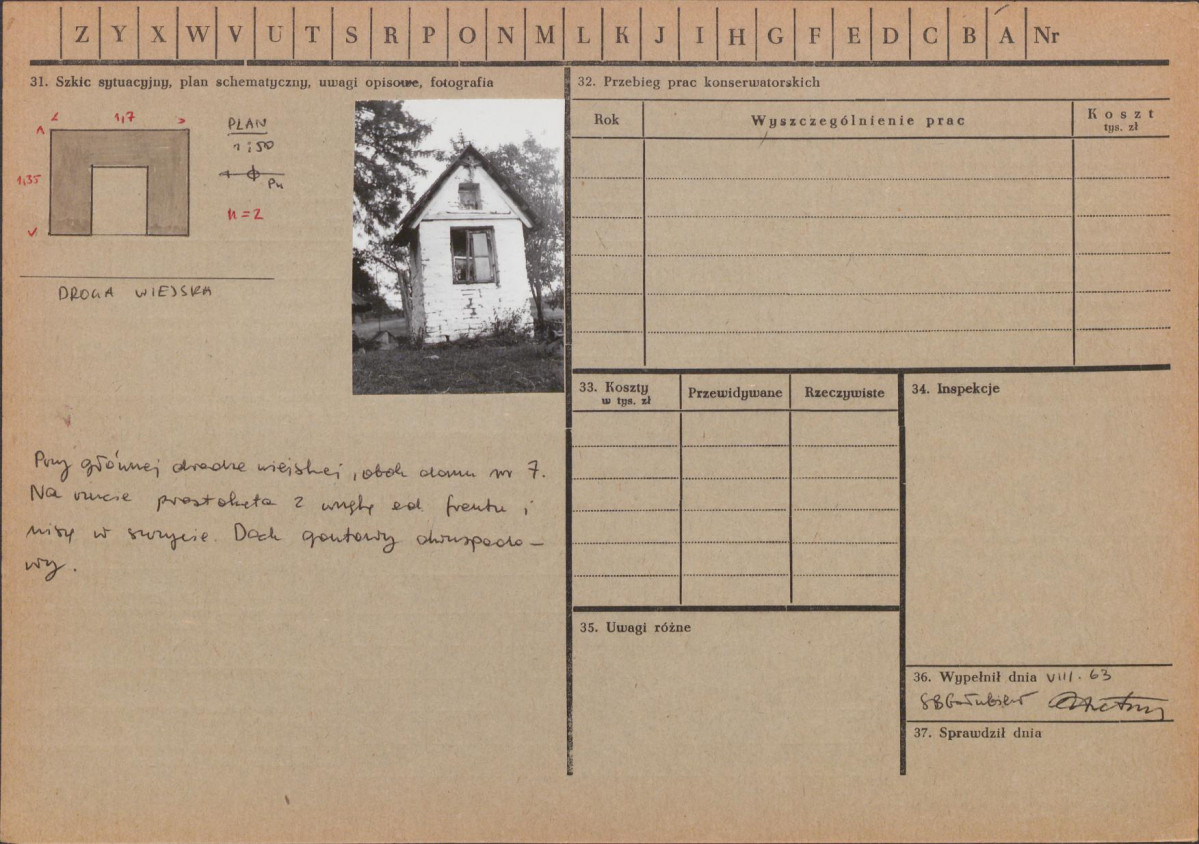 Z Y X W V U T S R P O N M L K J I H G F E D C B A Nr
31. Szkic sytuacyjny, plan schematyczny, uwagi opisowe, fotografia
1,7
1,35
PLAN
1:50
Pn
n=2
DROGA WIEJSKA
Przy głównej drodze wiejskiej, obok domu nr 7.
Na rzucie prostokąta z wnęką od frontu i
niszą w szczycie. Dach gontowy dwuspado-
wy.
32. Przebieg prac konserwatorskich
Rok
Wyszczególnienie prac
Koszt
tys. zł
33. Koszty
w tys. zł
Przewidywane
Rzeczywiste
34. Inspekcje
35. Uwagi różne
36. Wypełnił dnia VIII. 63
37. Sprawdził dnia